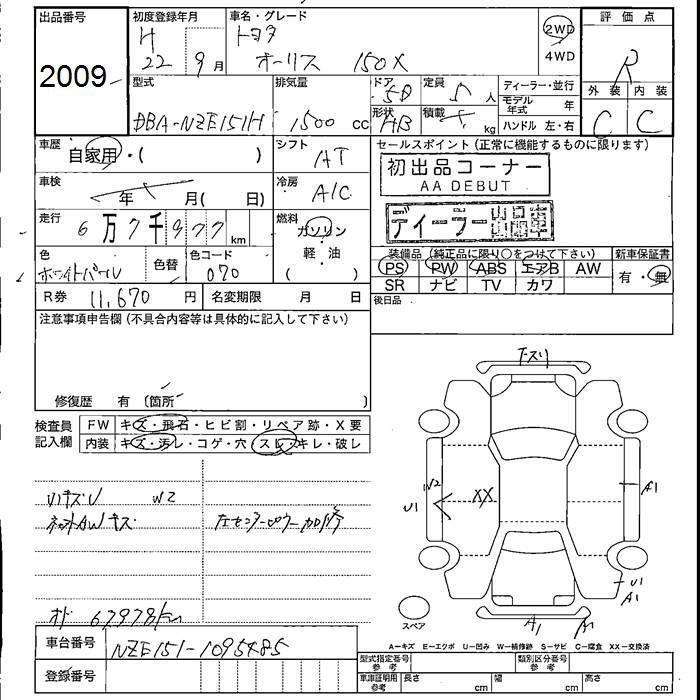 出品番号
2009
初度登録年月
H
22 9月
車名・グレード
トヨタ
オーリス 150X
2WD
4WD
評価点
R
外装 内装
C C
型式
DBA-NZE151H
排気量
1500 cc
ドア 5D
形状 HB
定員 5人
積載 kg
ディーラー・並行
モデル年式 年
ハンドル 左・右
車歴
自家用・( )
シフト
AT
車検
年 月( 日)
冷房
A/C
走行
6万7千977km
燃料
ガソリン
軽・油
( )
色
ホワイトパール
色替
色コード
070
R券 11,670円
名変期限 月 日
セールスポイント(正常に機能するものに限ります)
初出品コーナー
AA DEBUT
ディーラー出品車
装備品(純正品に限り○をつけて下さい)
新車保証書
PS PW ABS エアB AW
SR ナビ TV カワ
有・無
後日品
注意事項申告欄(不具合内容等は具体的に記入して下さい)
修復歴 有〔箇所 〕
検査員
記入欄
FW キズ・飛石・ヒビ割・リペア跡・X要
内装 キズ・汚レ・コゲ・穴 スレ・キレ・破レ
W2
AWキズ
オド 67978km
車台番号 NZE151-1095485
登録番号
W2
U1
XX
A1
U1
A1
A1
A1
スペア
A－キズ E－エクボ U－凹み W－補修跡 S－サビ C－腐食 XX－交換済
型式指定番号
参考
類別区分番号
参考
車庫証明用
参考
長さ cm
幅 cm
高さ cm